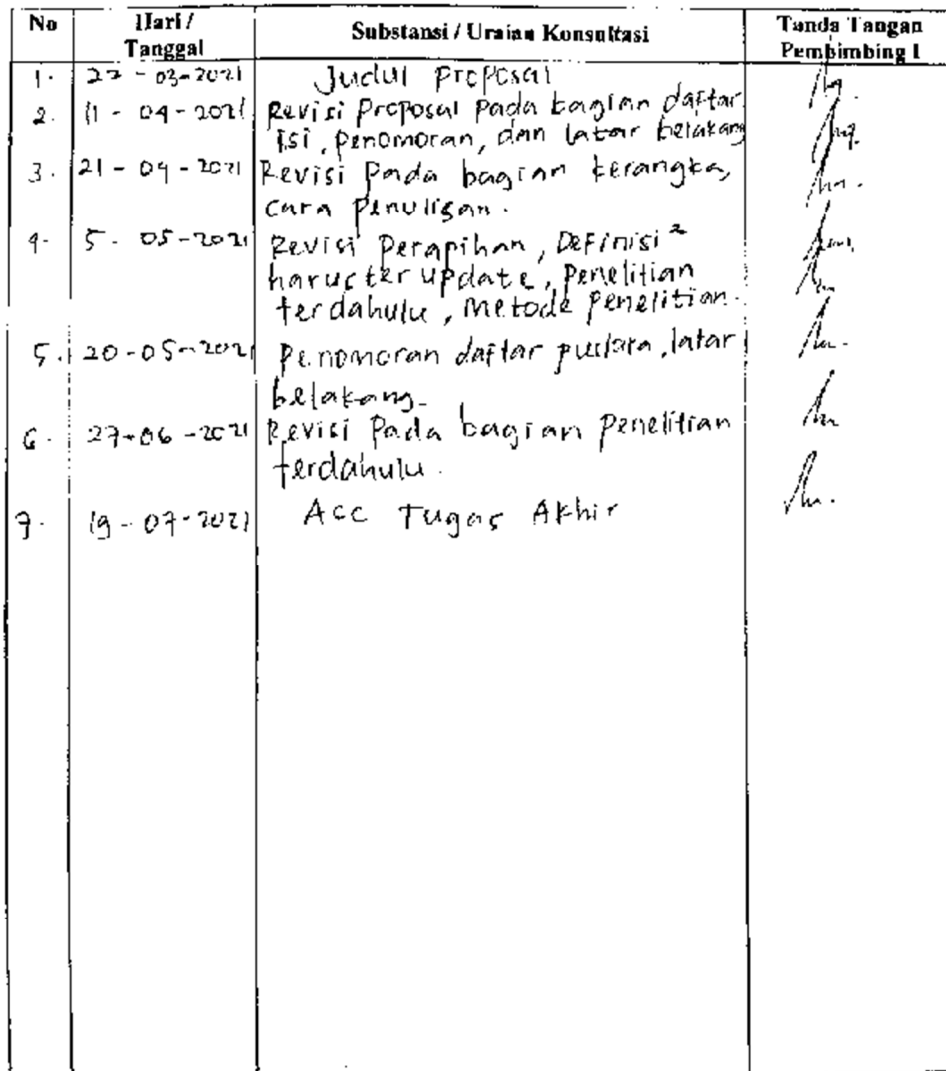 No Hari / Tanggal Substansi / Uraian Konsultasi Tanda Tangan Pembimbing I
1. 22 - 03 - 2021 Judul Proposal
2. 11 - 04 - 2021 Revisi Proposal Pada bagian daftar
isi, penomoran, dan latar belakang
3. 21 - 04 - 2021 Revisi Pada bagian kerangka,
cara Penulisan.
4. 5 - 05 - 2021 Revisi Perapihan, Definisi²
harus ter update, Penelitian
terdahulu, metode penelitian.
5. 20 - 05 - 2021 Penomoran daftar pustaka, latar
belakang.
6. 27 - 06 - 2021 Revisi Pada bagian Penelitian
terdahulu.
7. 19 - 07 - 2021 Acc Tugas Akhir